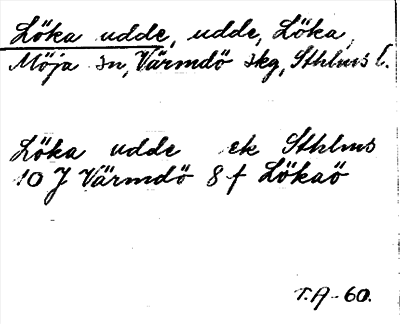 Löka udde, udde, Löka,
Möja sn, Värmdö skg, Sthlms l.
Löka udde ek Sthlms
10 J Värmdö 8 f Lökaö
T.A-60.